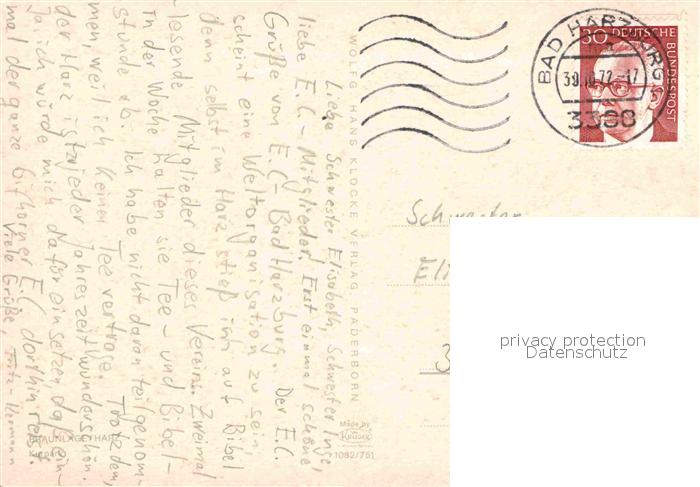 Liebe Schwester Elisabeth, Schwester Inge,
liebe E.C.-Mitglieder. Erst einmal schöne
Grüße vom E.C.-Bad Harzburg. Der E.C.
scheint eine Weltorganisation zu sein
denn selbst im Harz stieß ich auf Bibel
-lesende Mitglieder dieses Vereins. Zweimal
in der Woche halten sie Tee- und Bibel-
stunde ab. Ich habe nicht daran teilgenom-
men, weil ich keinen Tee vertrage. Trotzdem,
der Harz ist zu jeder Jahreszeit wunderschön.
Ja, ich würde mich dafür einsetzen, daß ein-
mal der ganze Gifhorner E.C. dorthin
Viele Grüße, Fritz-Hermann
BRAUNLAGE/HARZ
Kurpark
WOLFG. HANS KLOCKE VERLAG PADERBORN
Made by
Krüger
1082/751
BAD HARZBURG 1
30.10.72-17
3388
30 DEUTSCHE
BUNDESPOST
Schwester
Eli
3
privacy protection
Datenschutz